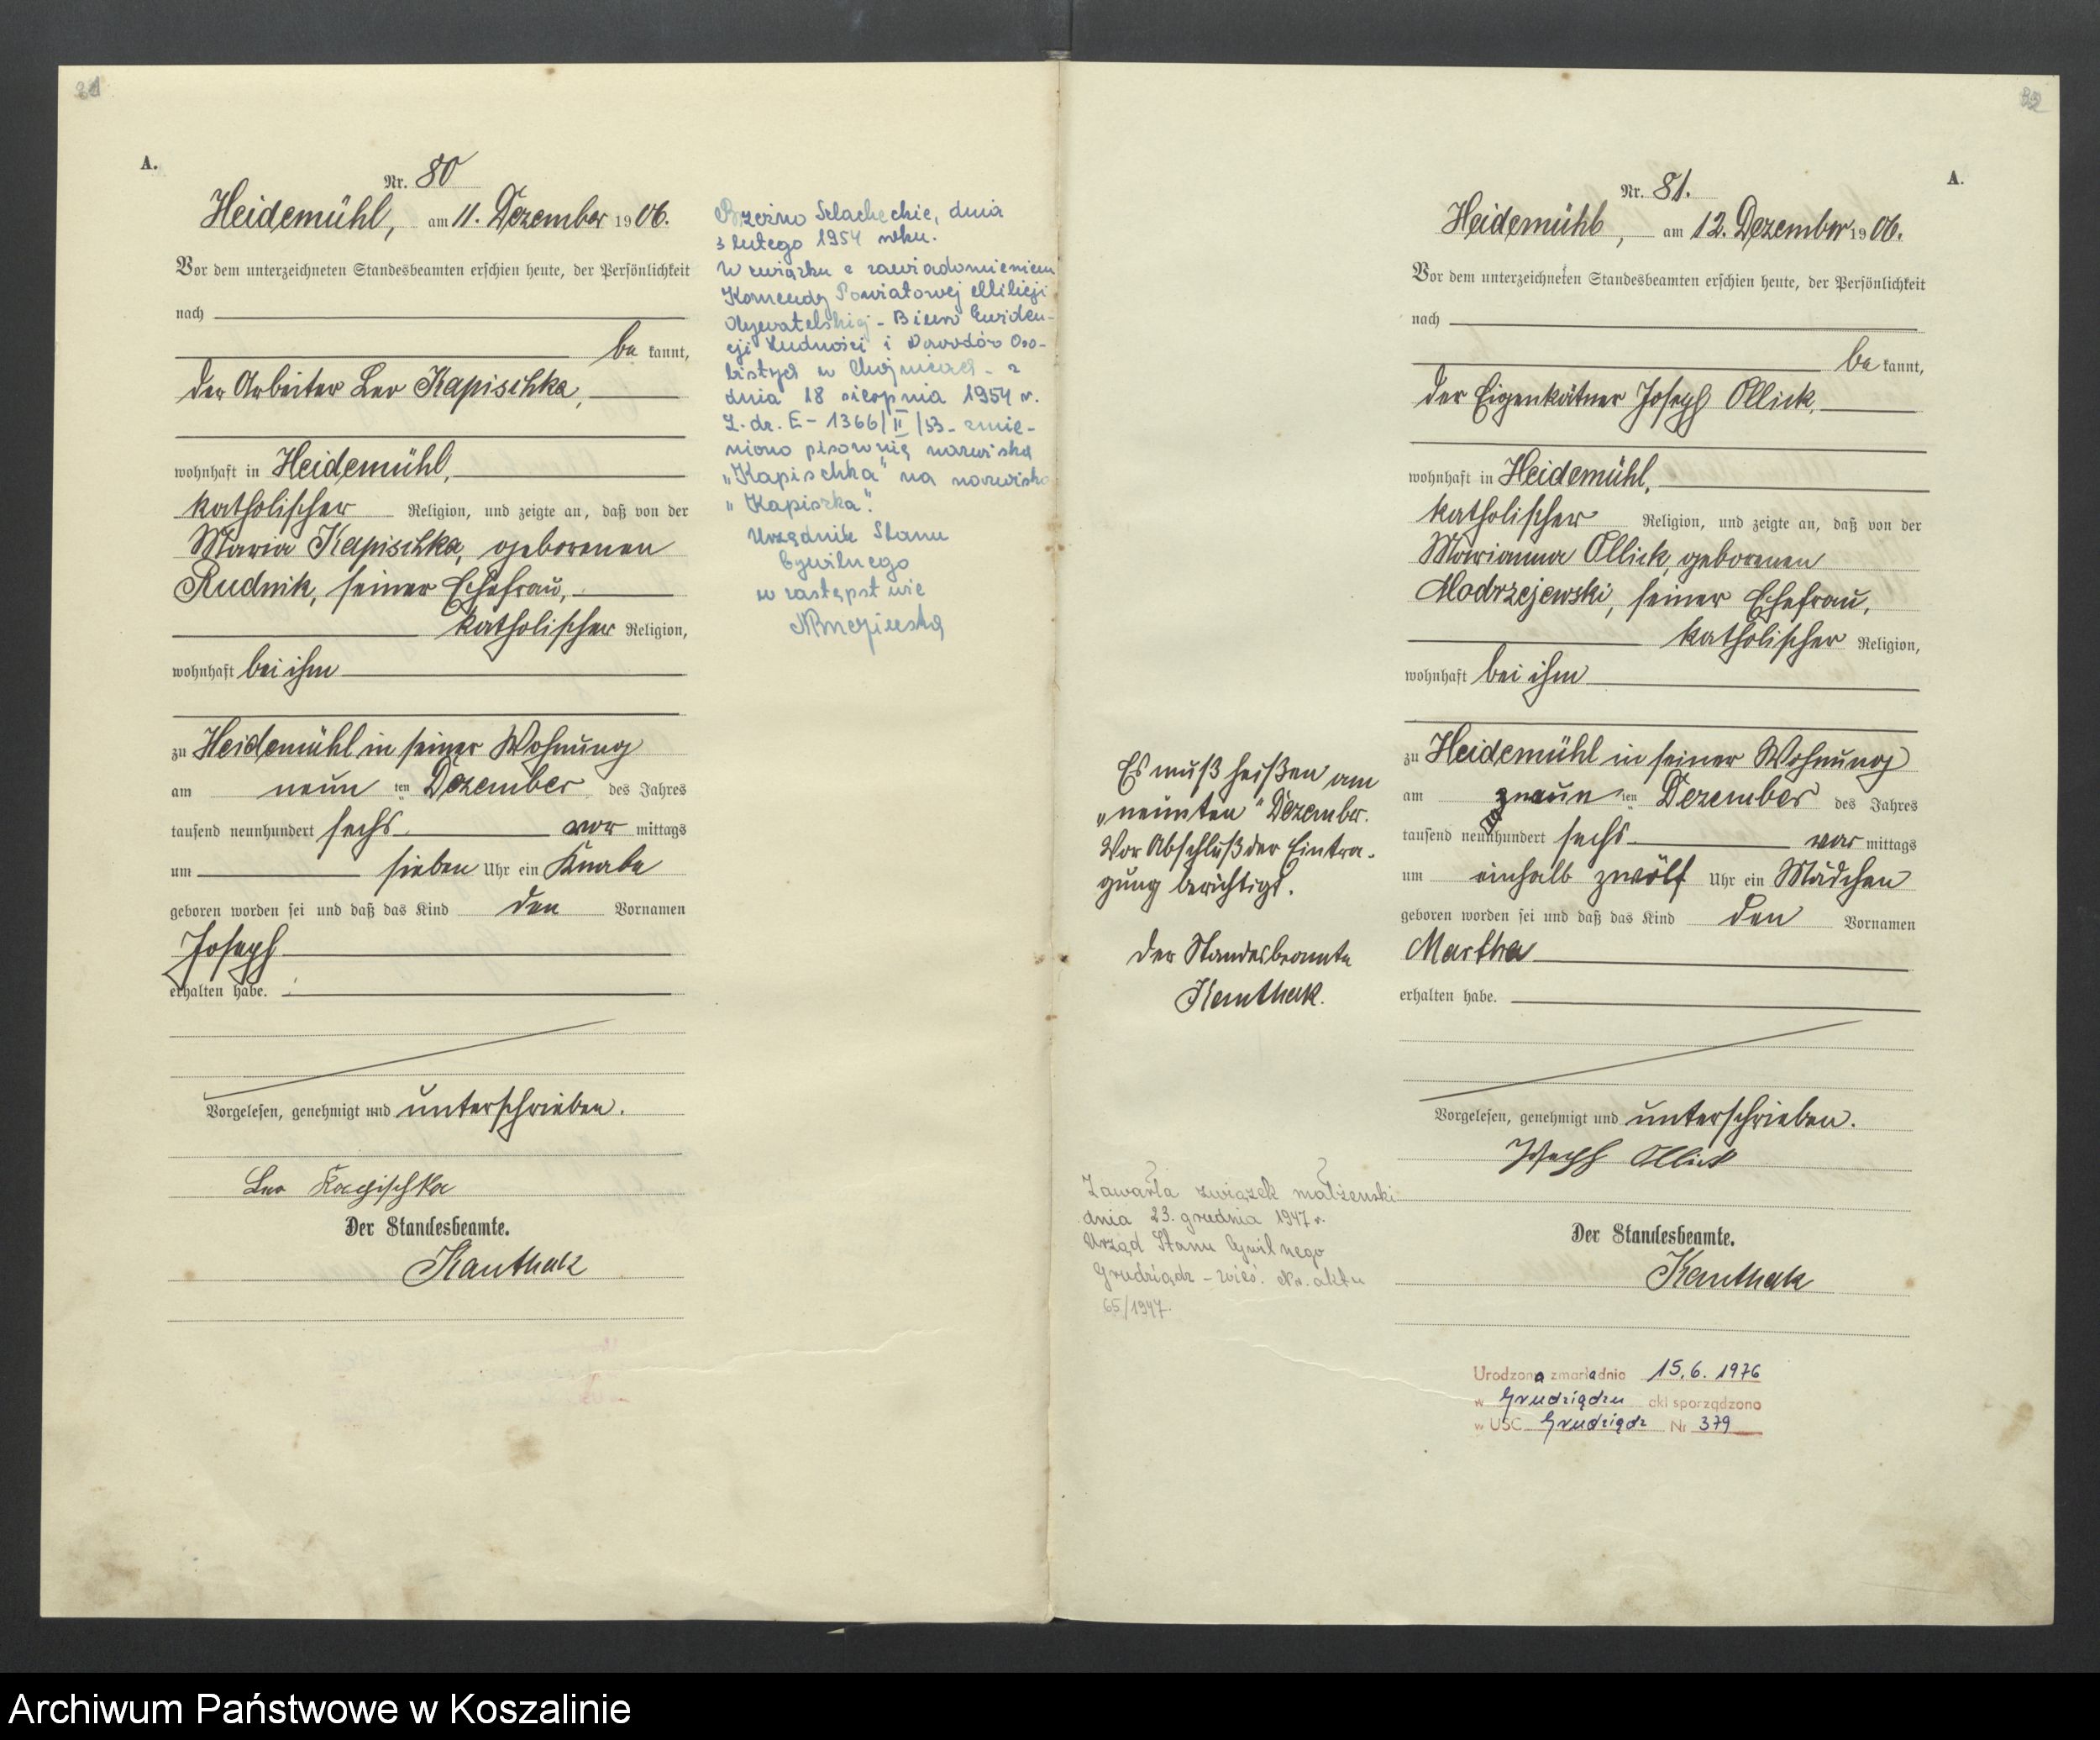 31
A.
Nr. 80
Heidemühl, am 11. Dezember 1906.
Vor dem unterzeichneten Standesbeamten erschien heute, der Persönlichkeit
nach
be kannt,
der Arbeiter Leo Kapischka,
wohnhaft in Heidemühl,
katholischer Religion, und zeigte an, daß von der
Maria Kapischka, geborenen
Rudnik, seiner Ehefrau,
katholischer Religion,
wohnhaft bei ihm
zu Heidemühl in seiner Wohnung
am neun ten Dezember des Jahres
tausend neunhundert sechs vor mittags
um sieben Uhr ein Knabe
geboren worden sei und daß das Kind den Vornamen
Joseph
erhalten habe.
Vorgelesen, genehmigt und unterschrieben.
Leo Kapischka
Der Standesbeamte.
Kanthak
Brzeźno Szlacheckie, dnia
3 lutego 1954 roku.
W związku z zawiadomieniem
Komendy Powiatowej Milicji
Obywatelskiej - Biuro Ewiden-
cji Ludności i Dowodów Oso-
bistych w Chojnicach - z
dnia 18 sierpnia 1954 r.
L. dz. E - 1366/II/53 - zmie-
niono pisownię nazwiska
„Kapischka" na nazwisko
„Kapiszka".
Urzędnik Stanu
Cywilnego
w zastępstwie
32
A.
Nr. 81.
Heidemühl, am 12. Dezember 1906.
Vor dem unterzeichneten Standesbeamten erschien heute, der Persönlichkeit
nach
be kannt,
der Eigenkätner Joseph Ollick,
wohnhaft in Heidemühl,
katholischer Religion, und zeigte an, daß von der
Marianna Ollick, geborenen
Modrzejewski, seiner Ehefrau,
katholischer Religion,
wohnhaft bei ihm
zu Heidemühl in seiner Wohnung
am neun ten Dezember des Jahres
tausend neunhundert sechs vor mittags
um einhalb zwölf Uhr ein Mädchen
geboren worden sei und daß das Kind den Vornamen
Martha
erhalten habe.
Vorgelesen, genehmigt und unterschrieben.
Joseph Ollick
Der Standesbeamte.
Kanthak
Es muß heißen am
„neunten" Dezember.
Vor Abschluß der Eintra-
gung berichtigt.
Der Standesbeamte
Kanthak.
Zawarła związek małżeński
dnia 23. grudnia 1947 r.
Urząd Stanu Cywilnego
Grudziądz - wieś. Nr. aktu
65/1947.
Urodzona zmarła dnia 15.6.1976
w Grudziądzu akt sporządzono
w USC Grudziądz Nr 379
Archiwum Państwowe w Koszalinie